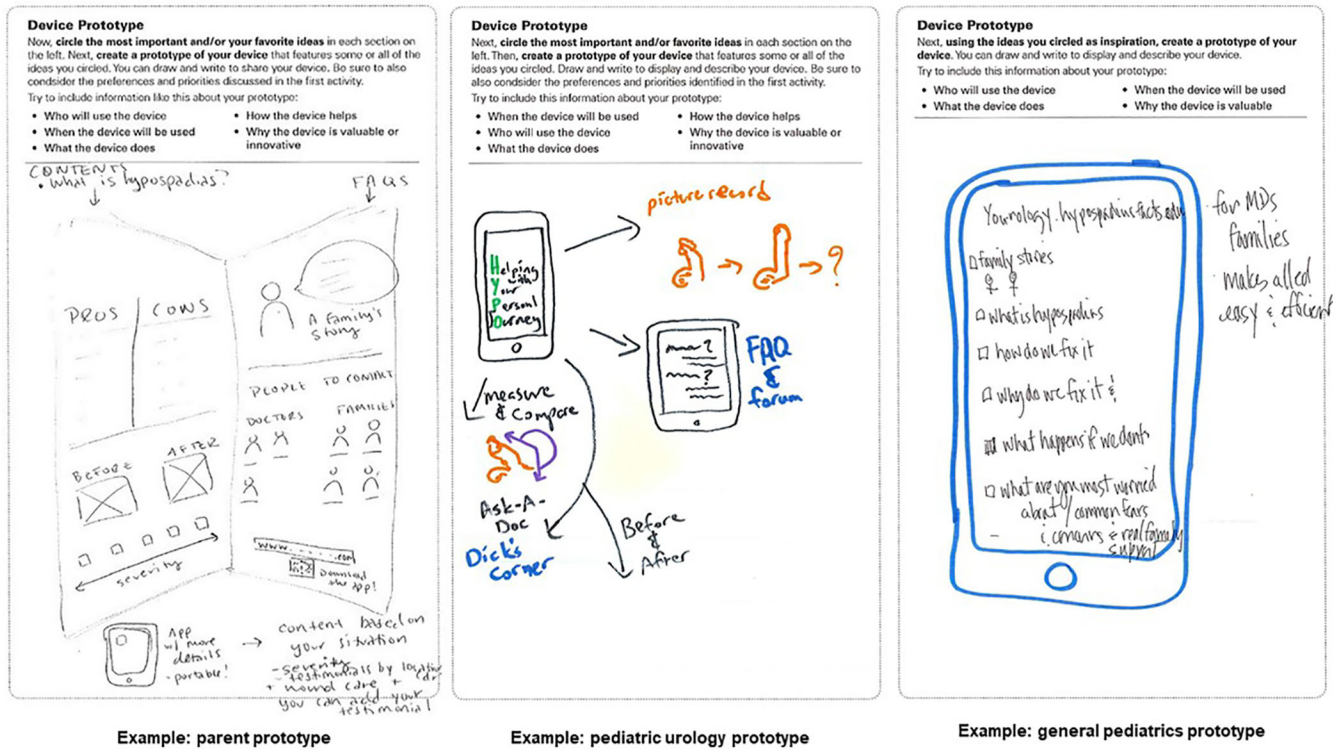 Device Prototype
Now, circle the most important and/or your favorite ideas in each section on
the left. Next, create a prototype of your device that features some or all of the
ideas you circled. You can draw and write to share your device. Be sure to also
condsider the preferences and priorities discussed in the first activity.
Try to include information like this about your prototype:
• Who will use the device
• When the device will be used
• What the device does
• How the device helps
• Why the device is valuable or
innovative
CONTENTS
• What is hypospadias?
FAQS
PROS
CONS
A Family's
Story
PEOPLE TO CONTACT
DOCTORS
FAMILIES
BEFORE
AFTER
severity
www. . . . .com
Download
the app!
App
w/ more
details
- portable!
content based on
your situation
- severity
- testimonials by location
+ wound care +
you can add your
testimonial
Example: parent prototype
Device Prototype
Next, circle the most important and/or favorite ideas in each section on the
left. Then, create a prototype of your device that features some or all of the
ideas you circled. Draw and write to display and describe your device. Be sure to
also condsider the preferences and priorities identified in the first activity.
Try to include this information about your prototype:
• When the device will be used
• Who will use the device
• What the device does
• How the device helps
• Why the device is valuable or
innovative
picture record
?
Helping
with
Your
Personl
Ourney
?
?
FAQ
&
forum
measure
& Compare
Ask-A-
Doc
Dick's
Corner
Before
&
After
Example: pediatric urology prototype
Device Prototype
Next, using the ideas you circled as inspiration, create a prototype of your
device. You can draw and write to display and describe your device.
Try to include this information about your prototype:
• Who will use the device
• What the device does
• When the device will be used
• Why the device is valuable
Yourology.hypospadiasfacts.edu
family stories
what is hypospadias
how do we fix it
why do we fix it &
what happens if we dont
what are you most worried
about / common fears
& concerns & real family
support
• for MDs
families
• makes alled
easy & efficient
Example: general pediatrics prototype